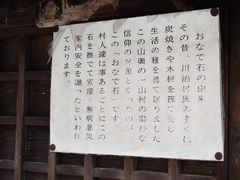 おなで石の由来
その昔、川治村民の多くは
炭焼きや木材を筏で流し
生活の糧を得て居りました
この山奥の一山村の素朴な
信仰の対象となったのが
この「おなで石」です
村人達は事あるごとにこの
石を撫でて安産・無病息災
家内安全を願ったといわれ
ております。